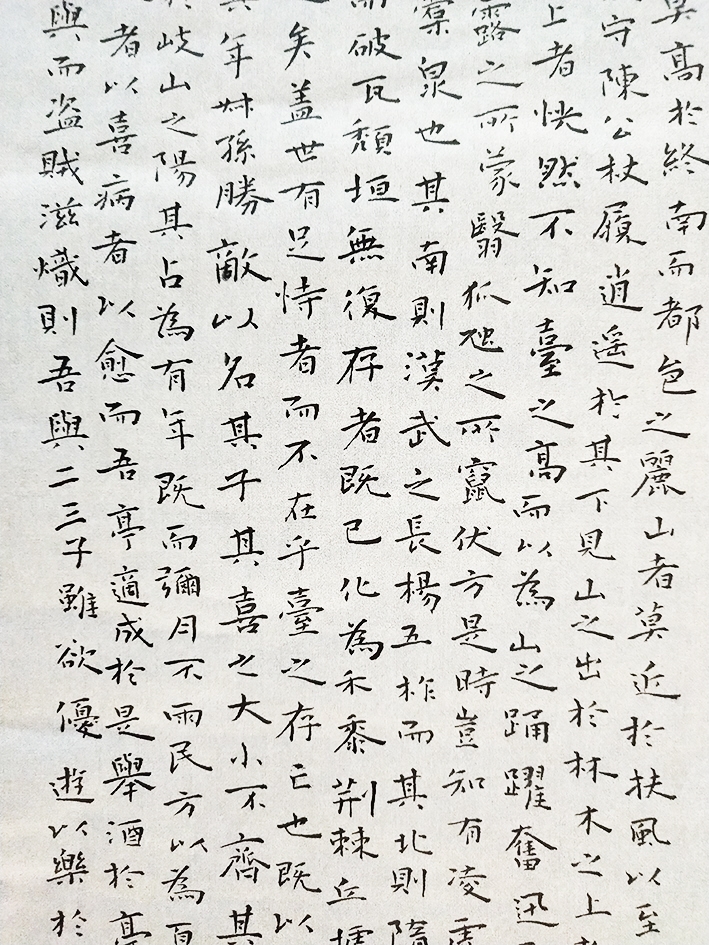 莫高於終南而都邑之麗山者莫近於扶風以至
守陳公杖履逍遥於其下見山之出於林木之上
上者怳然不知臺之高而以為山之踊躍奮迅
露之所蒙翳狐虺之所竄伏方是時豈知有凌虛
橐泉也其南則漢武之長楊五柞而其北則隋
而破瓦頹垣無復存者既已化為禾黍荆棘丘墟
矣盖世有足恃者而不在乎臺之存亡也既以
其年叔孫勝敵以名其子其喜之大小不齊其
於岐山之陽其占為有年既而彌月不雨民方以為
者以喜病者以愈而吾亭適成於是舉酒於亭
與而盗賊滋熾則吾與二三子雖欲優遊以樂於